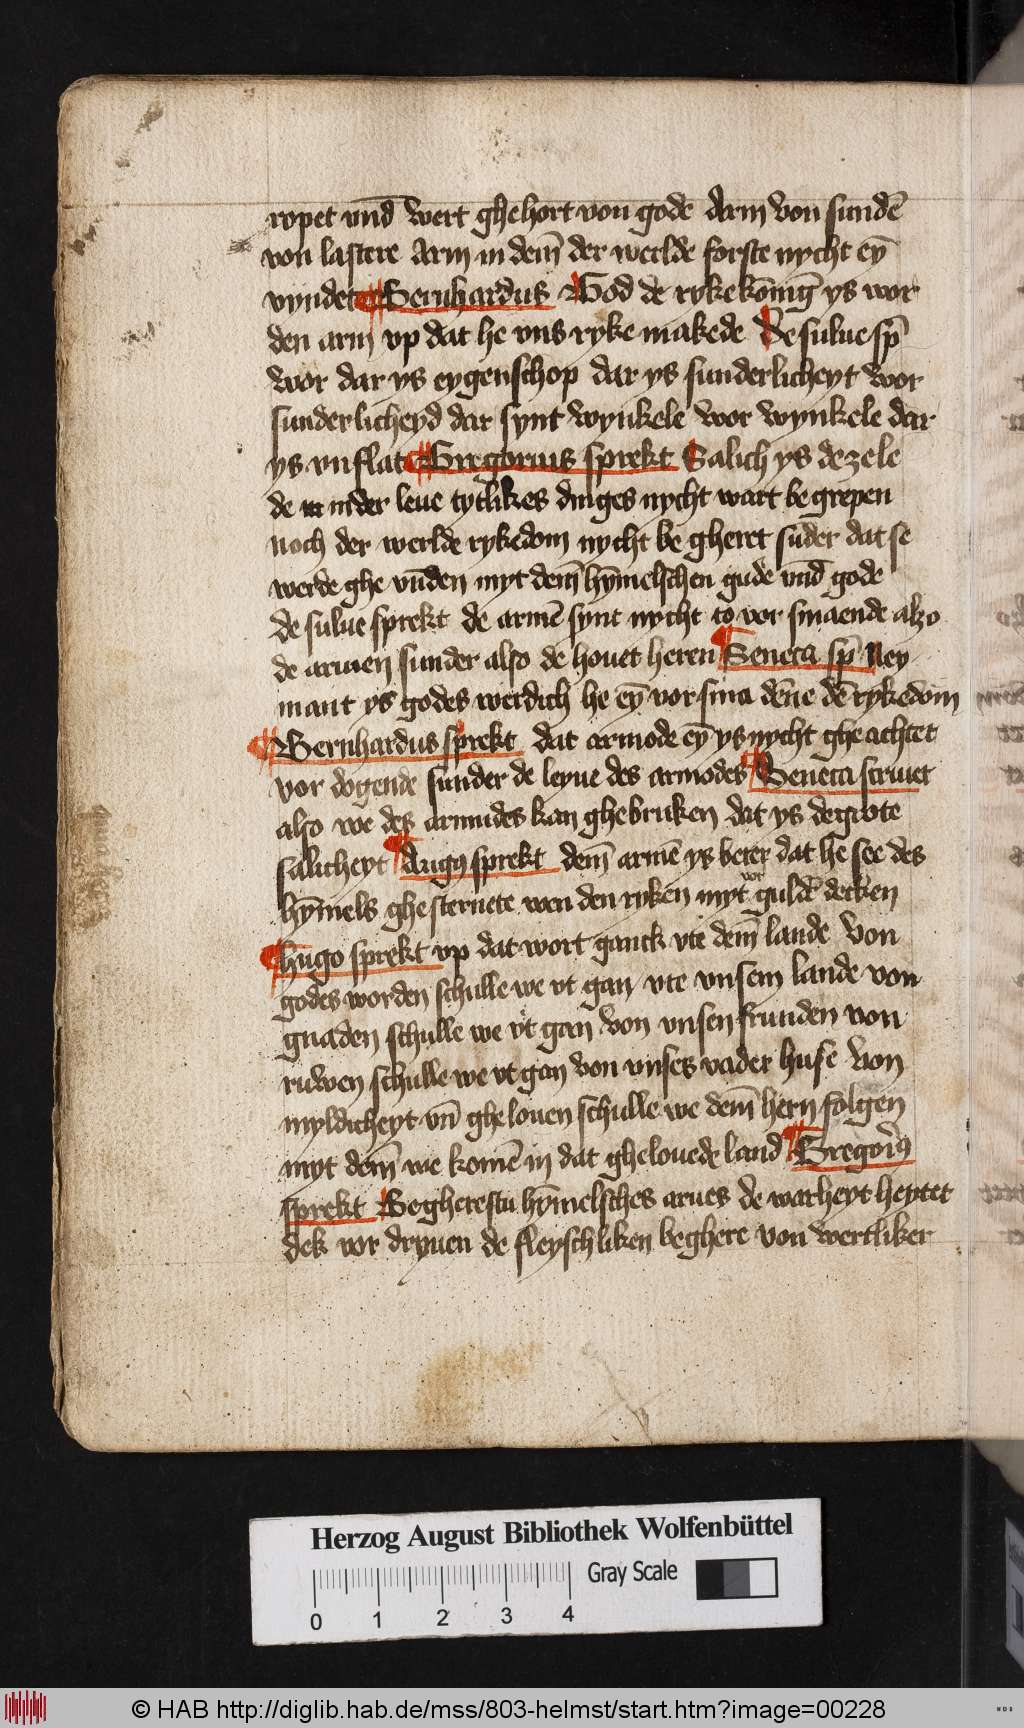 ropet vnd̄ wert ghehort von gode Arm von sundē
von lastere Arm in dem̄ der werlde forste nycht eȳ
vyndet Bernhardus God de ryke kōniḡ ys wor
den arm vp dat he vns ryke makede De sulue sp̄
wor dar ys eygenschop dar ys sunderlicheyt wor
sunderlicheyd dar synt wynkele wor wynkele dar
ys vnflat Gregorius sprekt Salich ys de zele
de in der leue tytlikes dinges nycht wart be grepen
noch der werlde rykedom nycht be gheret sūder dat se
werde ghe vūden myt dem̄ hȳmelschen gude vnd̄ gode
de sulue sprekt de armē synt nycht to vor smaende alzo
de armen sunder also de houet heren Seneca sp̄ Ney
mant ys godes werdich he eȳ vor sma dēne dē rykedom
Bernhardus sprekt dat armode eȳ ys nycht ghe achtet
vor dogende sunder de leyue des armodes Seneca scriuet
also we des armudes kan ghebruken dat ys de grote
salicheyt Augꝰ sprekt dem̄ armē ys beter dat he see des
hȳmels ghesternete wen den ryken myt vor guldē decken
hugo sprekt vp dat wort ganck vte dem̄ lande Von
godes worden schulle we vt gan vte vnsem lande von
gnaden schulle we vt gan von vnsen frunden von
ruwen schulle we vt gan von vnses vader huse Von
myldicheyt vn̄ ghelouen schulle we dem̄ hern folgen
myt dem̄ we komē in dat ghelouede land Gregoriꝰ
sprekt Begherestu hȳmelsches arues de warheyt heytet
dek vor dryuen de fleyschliken beghere von wertliker
Herzog August Bibliothek Wolfenbüttel
Gray Scale
0 1 2 3 4
© HAB http://diglib.hab.de/mss/803-helmst/start.htm?image=00228